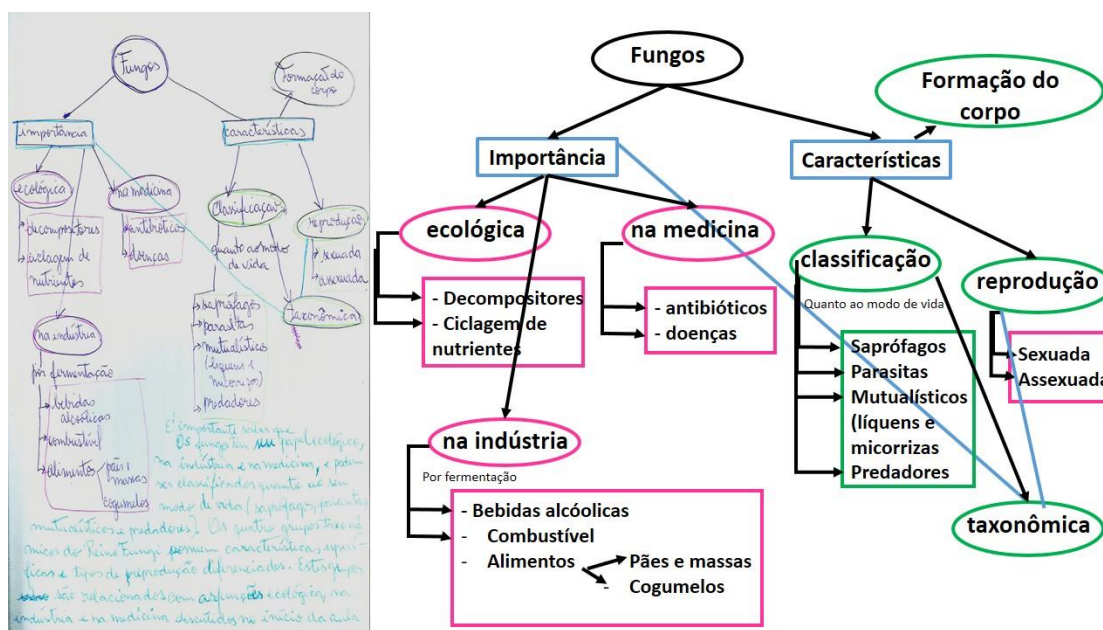 Fungos
Formação do corpo
importância
características
ecológica
na medicina
Classificação
reprodução
decompositores
ciclagem de nutrientes
antibióticos
doenças
quanto ao modo de vida
sexuada
assexuada
taxonômica
na indústria
saprófagos
parasitas
mutualísticos
(líquens e
predadores
por fermentação
bebidas alcoólicas
combustível
alimentos
pães e massas
cogumelos
É importante saber que
Os fungos tem seu papel ecológico,
na indústria e na medicina, e podem
ser classificados quanto ao seu
modo de vida (saprófagos, parasitas,
mutualísticos e predadores). Os quatro grupos taxonô-
micos do Reino Fungi possuem características especí-
ficas e tipos de reprodução diferenciados. Estes grupos
são relacionados com as funções ecológica, na
industria e na medicina discutidos no início da aula
Fungos
Formação do
corpo
Importância
Características
ecológica
na medicina
classificação
reprodução
Quanto ao modo de vida
- Decompositores
- Ciclagem de
nutrientes
- antibióticos
- doenças
Saprófagos
Parasitas
Mutualísticos
(líquens e
micorrizas
Predadores
Sexuada
Assexuada
na indústria
taxonômica
Por fermentação
- Bebidas alcóolicas
- Combustível
- Alimentos
Pães e massas
- Cogumelos